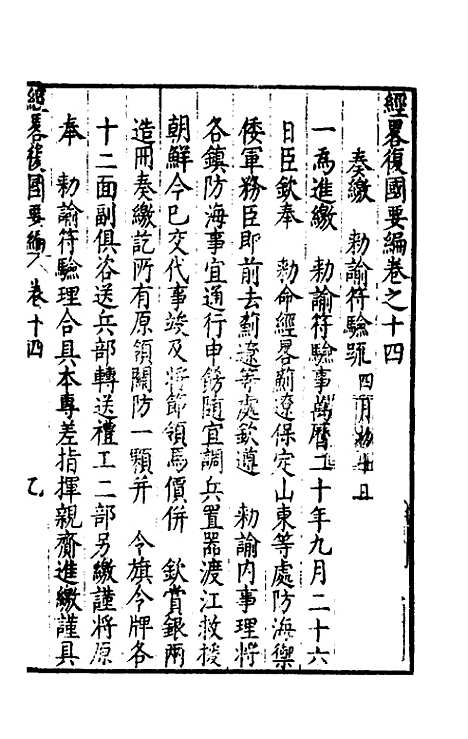 經畧復國要編卷之十四
奏繳　勅諭符驗疏四月初十日
一為進繳　勅諭符驗事萬曆二十年九月二十六
日臣欽奉　勅命經畧薊遼保定山東等處防海禦
倭軍務臣即前去薊遼等處欽遵　勅諭内事理將
各鎮防海事宜通行申飭隨宜調兵置器渡江救援
朝鮮今已交代事竣及將節領馬價併　欽賞銀兩
造冊奏繳訖所有原領關防一顆并　令旗令牌各
十二面副俱咨送兵部轉送禮工二部另繳謹將原
奉　勅諭符驗理合具本專差指揮親齎進繳謹具
經畧復國要編　卷十四　乙